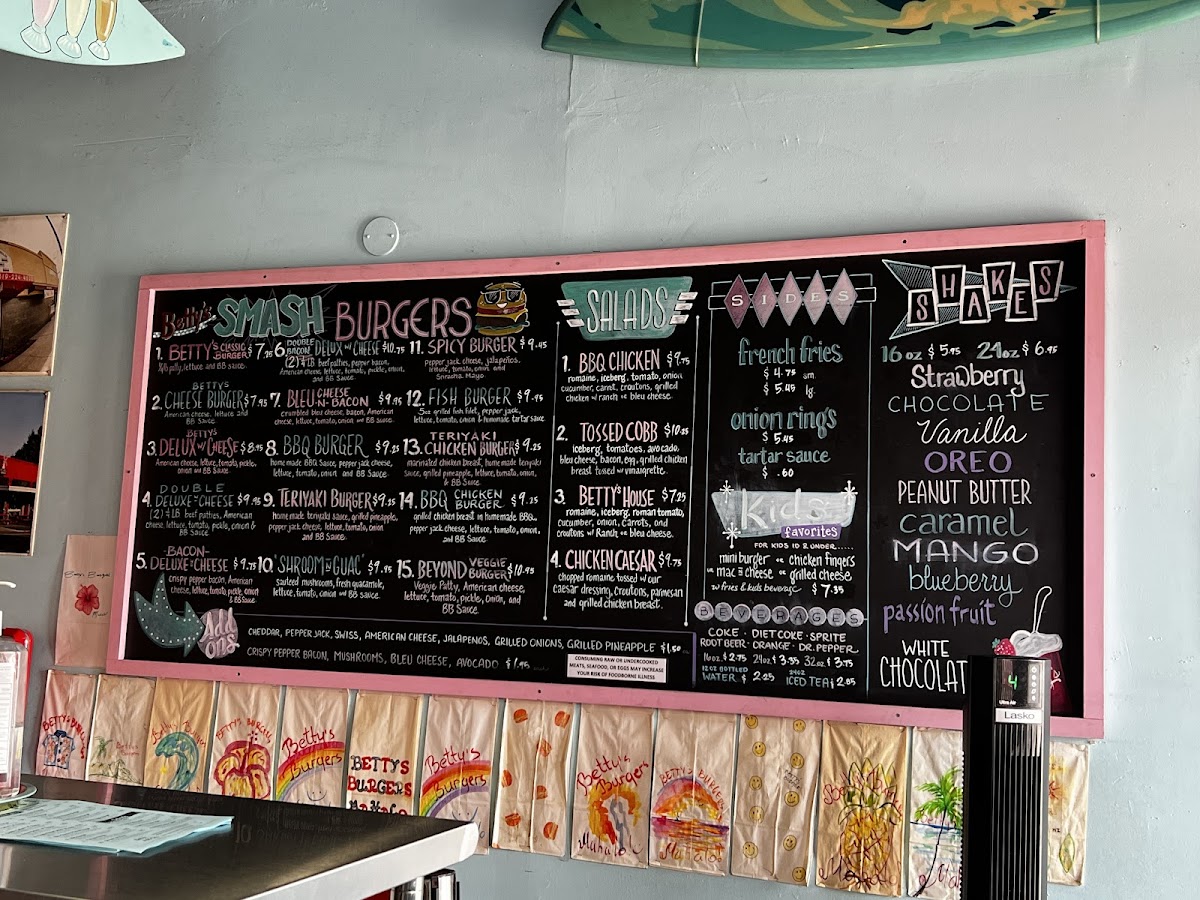 Betty's SMASH BURGERS
1. BETTY'S CLASSIC BURGER $7.25
1/4 lb patty, lettuce and BB sauce.
2. BETTYS CHEESE BURGER $7.95
American cheese, lettuce and
BB Sauce
3. BETTYS DELUX w/ CHEESE $8.95
American cheese, lettuce, tomato, pickle,
onion w/ BB sauce
4. DOUBLE DELUXE w/ CHEESE $9.95
(2) 1/4 LB beef patties, American
cheese, lettuce, tomato, pickle, onion &
BB Sauce
5. -BACON- DELUXE w/ CHEESE $9.75
crispy pepper bacon, American
cheese, lettuce, tomato, pickle, onion
& BB Sauce
6. DOUBLE BACON DELUX w/ CHEESE $10.75
(2) 1/4 LB beef patties, pepper bacon,
American cheese, lettuce, tomato, pickle, onion,
and BB Sauce.
7. BLEU CHEESE N- BACON $9.95
crumbled bleu cheese, bacon, American
cheese, lettuce, tomato, onion and BB sauce.
8. BBQ BURGER $9.25
home made BBQ Sauce, pepper jack cheese,
lettuce, tomato, onion and BB Sauce
9. TERIYAKI BURGER $9.25
home made teriyaki sauce, grilled pineapple,
pepper jack cheese, lettuce, tomato, onion
and BB Sauce.
10. 'SHROOM n GUAC' $9.95
sauteed mushrooms, fresh guacamole,
lettuce, tomato, onion and BB sauce.
11. SPICY BURGER $9.45
pepper jack cheese, jalapeños,
lettuce, tomato, onion and
Sriracha Mayo
12. FISH BURGER $9.95
5oz grilled fish filet, pepper jack,
lettuce, tomato, onion & homemade tartar sauce
13. TERIYAKI CHICKEN BURGER $9.25
marinated chicken breast, home made teriyaki
sauce, grilled pineapple, lettuce, tomato, onion,
& BB Sauce
14. BBQ CHICKEN BURGER $9.25
grilled chicken breast in homemade BBQ,
pepper jack cheese, lettuce, tomato, onion,
and BB Sauce
15. BEYOND VEGGIE BURGER $10.95
Veggie Patty, American cheese,
lettuce, tomato, pickle, onion, and
BB Sauce.
Add ons
CHEDDAR, PEPPER JACK, SWISS, AMERICAN CHEESE, JALAPENOS, GRILLED ONIONS, GRILLED PINEAPPLE $1.50
CRISPY PEPPER BACON, MUSHROOMS, BLEU CHEESE, AVOCADO $1.95
CONSUMING RAW OR UNDERCOOKED
MEATS, SEAFOOD, OR EGGS MAY INCREASE
YOUR RISK OF FOODBORNE ILLNESS
SALADS
1. BBQ CHICKEN $9.75
romaine, iceberg, tomato, onion
cucumber, carrot, croutons, grilled
chicken w/ ranch or bleu cheese.
2. TOSSED COBB $10.25
iceberg, tomatoes, avocado,
bleu cheese, bacon, egg, grilled chicken
breast tossed w/ vinaigrette.
3. BETTY'S HOUSE $7.25
romaine, iceberg, roman tomato,
cucumber, onion, carrots, and
croutons w/ Ranch or bleu cheese.
4. CHICKEN CAESAR $9.75
chopped romaine tossed w/ our
caesar dressing, croutons, parmesan
and grilled chicken breast.
SIDES
french fries
$4.75 sm.
$5.45 lg.
onion rings
$5.45
tartar sauce
$ .60
Kids
favorites
FOR KIDS 10 & UNDER.....
mini burger or chicken fingers
or mac n cheese or grilled cheese
w/ fries & kids beverage $7.35
BEVERAGES
COKE · DIET COKE · SPRITE
ROOT BEER · ORANGE · DR. PEPPER
16oz $2.75 24oz $3.35 32oz $3.75
12 OZ BOTTLED WATER $2.25 24OZ ICED TEA $2.85
SHAKES
16 oz $5.95 24oz $6.95
Strawberry
CHOCOLATE
Vanilla
OREO
PEANUT BUTTER
caramel
MANGO
blueberry
passion fruit
WHITE
CHOCOLAT
4
Lasko
BETTY'S BURGERS
Betty's Burgers
BETTY'S BURGERS
Betty's Burgers
BETTYS
BURGERS
MAHALO
Betty's
Burgers
Betty's
Burgers
Mahalo
BETTY'S BURGERS
Mahalo